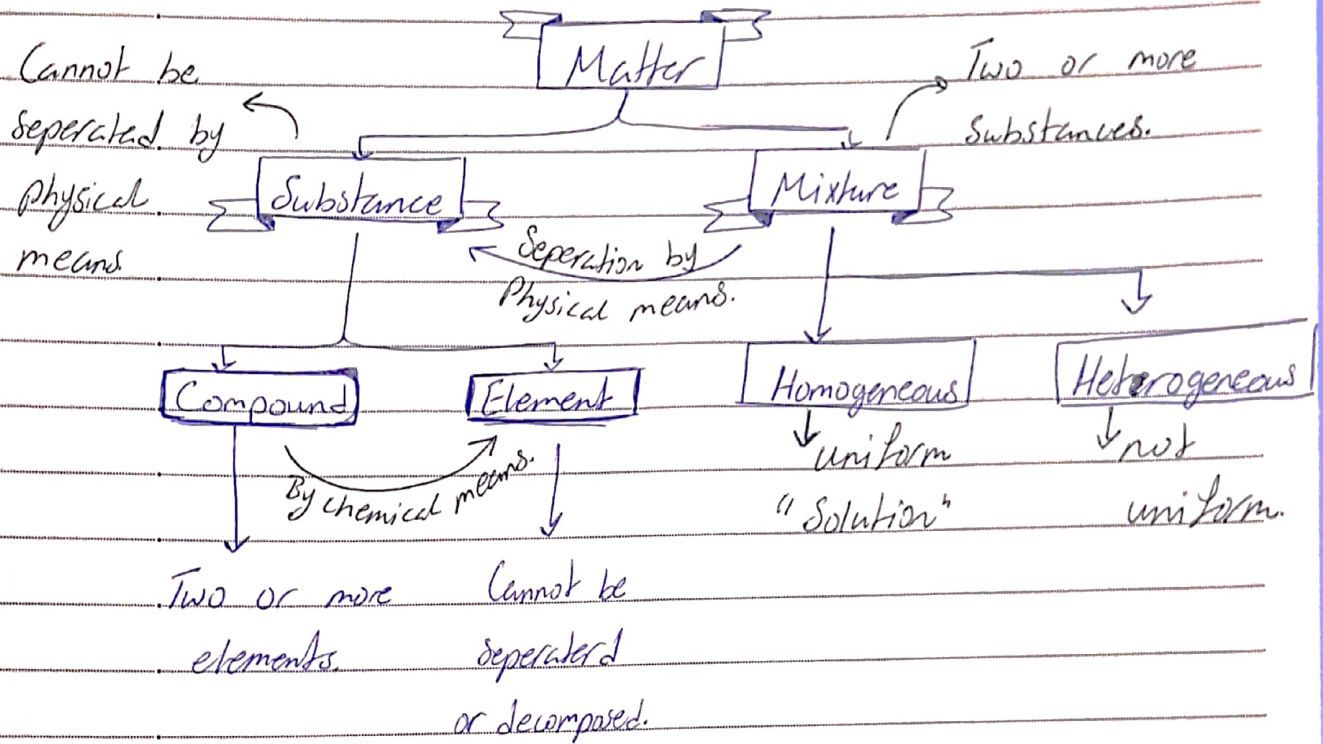 Matter
Cannot be
seperated by
physical
means.
Two or more
substances.
Substance
Mixture
Seperation by
Physical means.
Compound
Element
Homogeneous
Heterogeneous
By chemical means.
uniform
"Solution"
not
uniform.
Two or more
elements.
Cannot be
seperaterd
or decomposed.